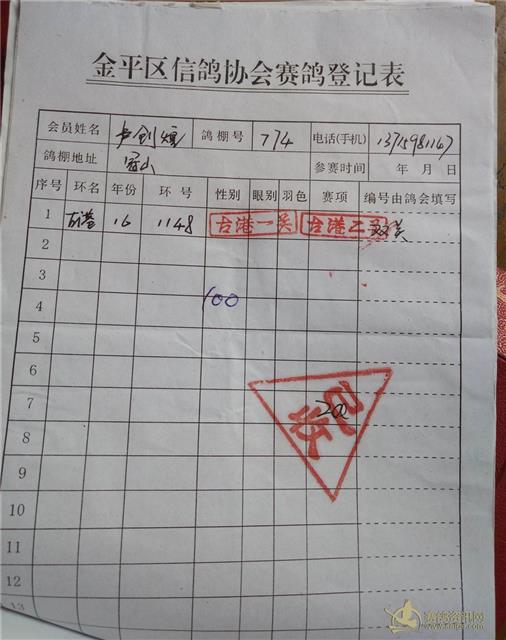 金平区信鸽协会赛鸽登记表
会员姓名 卢创煌 鸽棚号 774 电话(手机) 13715981167
鸽棚地址 参赛时间 年 月 日
序号 环名 年份 环号 性别 眼别 羽色 赛项 编号由鸽会填写
1 古港 16 1148 古港一关 古港二关 双关
2
3
4 100
5
6
7 200
8
9
10
11
12
13
赛鸽资讯网